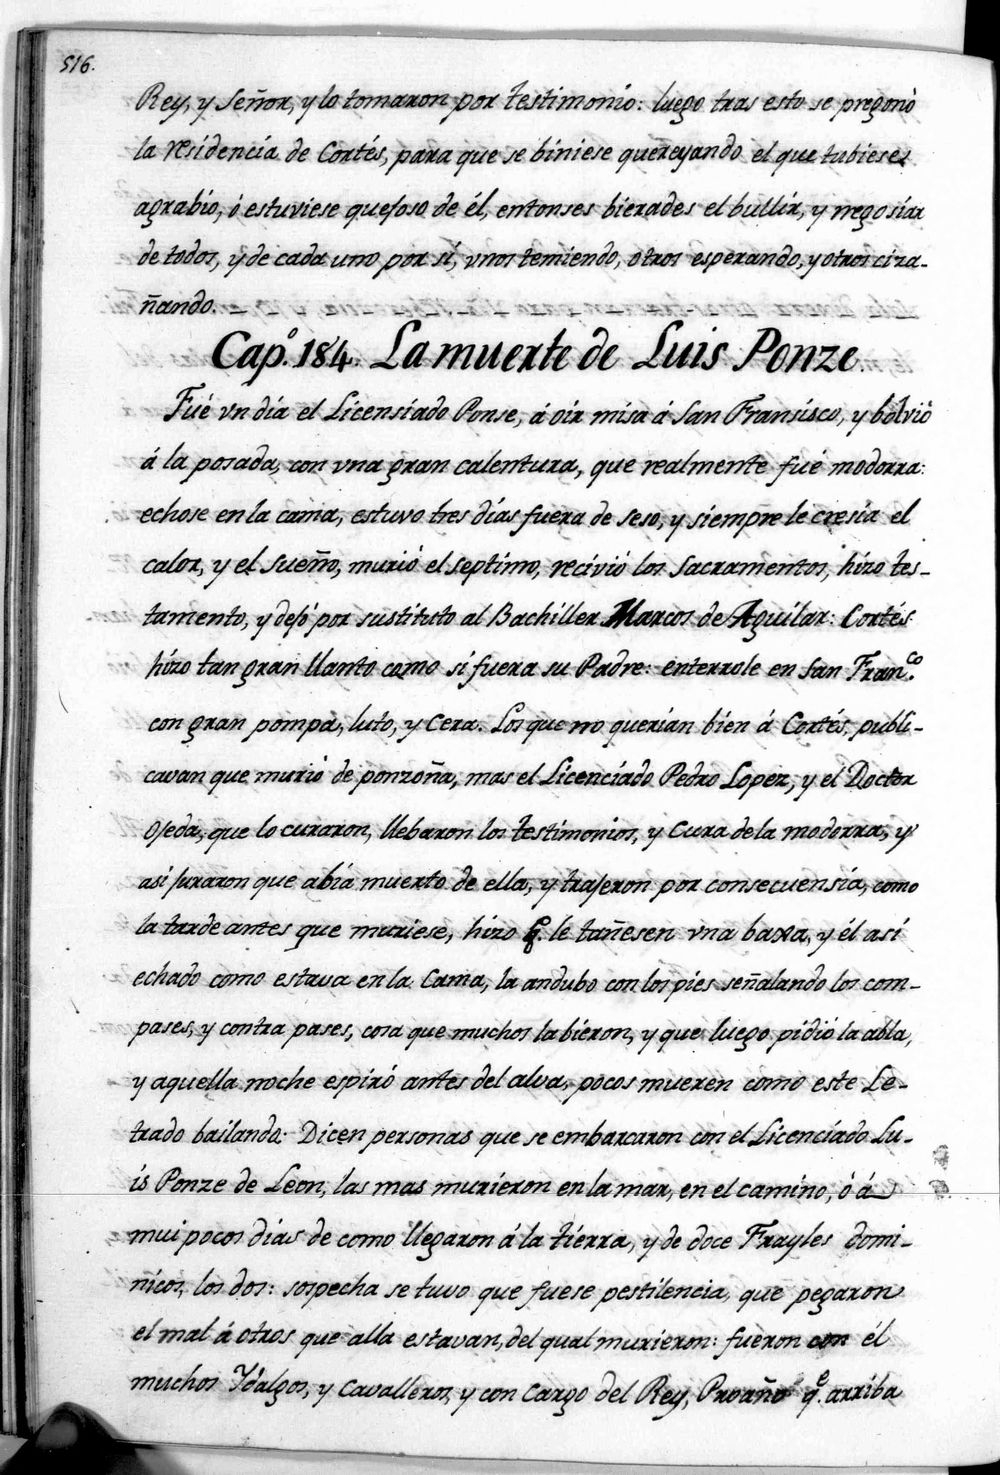 516.
Rey, y Señor, y lo tomaron por testimonio: luego tras esto se pregonò
la residencia de Cortés, para que se biniese quereyando el que tubiese
agrabio, ó estuviese quejoso de él, entonses bierades el bullir, y negosiar
de todos, y de cada uno por sí, vnos temiendo, otros esperando, y otros ciza-
ñando.
Capº. 184. La muerte de Luis Ponze.
Fué vn día el Licensiado Ponse, á oir misa á San Fransisco, y bolvió
á la posada, con vna gran calentura, que realmente fué modorra:
echose en la cama, estuvo tres días fuera de seso, y siempre le cresia el
calor, y el sueño, murió el septimo, recivió los Sacramentos, hizo tes-
tamento, y dejó por sustituto al Bachiller Marcos de Aguilar: Cortés
hizo tan gran llanto como si fuera su Padre: enterrole en San Fran.co
con gran pompa, luto, y Cera. Los que no querían bien á Cortés, publi-
cavan que murió de ponzoña, mas el Licenciado Pedro Lopez, y el Doctor
Ojeda, que lo curaron, llebaron los testimonios, y Cura de la modorra, y
asi juraron que abía muerto de ella, y trajeron por consecuensía, como
la tarde antes que muriese, hizo q.e le tañesen vna baxa, y él así
echado como estava en la Cama, la andubo con los pies señalando los com-
pases, y contra pases, cosa que muchos la bieron, y que luego pidió la abla,
y aquella noche espiró antes del alva, pocos mueren como este Le-
trado bailando: Dicen personas que se embarcaron con el Licenciado Lu-
is Ponze de Leon, las mas murieron en la mar, en el camino, ó á
mui pocos días de como llegaron á la tierra, y de doce Frayles domi-
nicos, los dos: sospecha se tuvo que fuese pestilencia, que pegaron
el mal á otros que alla estavan, del qual murieron: fueron con él
muchos Ydalgos, y Cavalleros, y con Cargo del Rey, Proaño q.e arriba